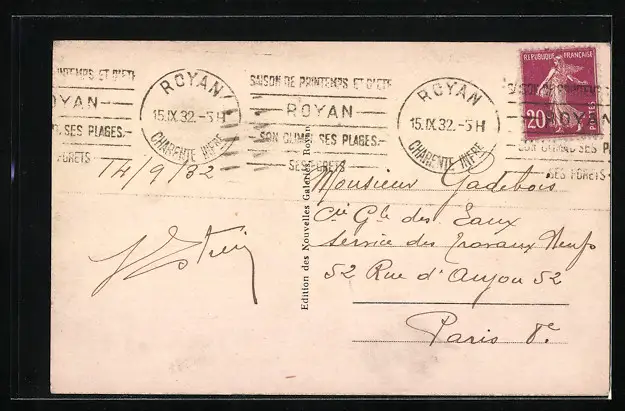 RINTEMPS ET D'ÉTÉ
OYAN
SES PLAGES.
FORETS
ROYAN
15.IX.32.-5H
CHARENTE INFRE
SAISON DE PRINTEMPS ET D'ÉTÉ
ROYAN
SON CLIMAT SES PLAGES.
SES FORETS
ROYAN
15.IX.32.-5H
CHARENTE INFRE
SAISON DE PRINTEMPS
ROYAN
SON CLIMAT SES P
SES FORETS
REPUBLIQUE FRANÇAISE
20c
POSTES
14/9/32
Edition des Nouvelles Galeries, Royan
Monsieur Gadebois
Cie Gle des Eaux
Service des Travaux Neufs
52 Rue d'Anjou 52
Paris 8e